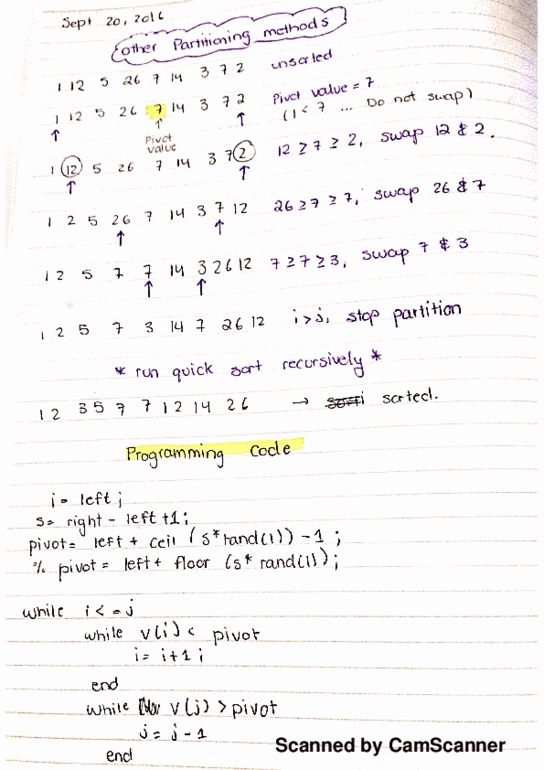 Sept 20, 2016
Other Partitioning methods
1 12 5 26 7 14 3 7 2 unsorted
1 12 5 26 7 14 3 7 2 Pivot value = 7
(1 < 7 ... Do not swap)
Pivot value
1 12 5 26 7 14 3 7 2 12 ≥ 7 ≥ 2, swap 12 & 2.
1 2 5 26 7 14 3 7 12 26 ≥ 7 ≥ 7, swap 26 & 7
1 2 5 7 7 14 3 26 12 7 ≥ 7 ≥ 3, swap 7 & 3
1 2 5 7 3 14 7 26 12 i > j, stop partition
* run quick sort recursively *
1 2 3 5 7 7 12 14 26 → sorted.
Programming Code
i = left;
s = right - left + 1;
pivot = left + ceil (s * rand(1)) - 1;
% pivot = left + floor (s * rand(1));
while i <= j
while v(i) < pivot
i = i+1;
end
while v(j) > pivot
j = j - 1
end
Scanned by CamScanner